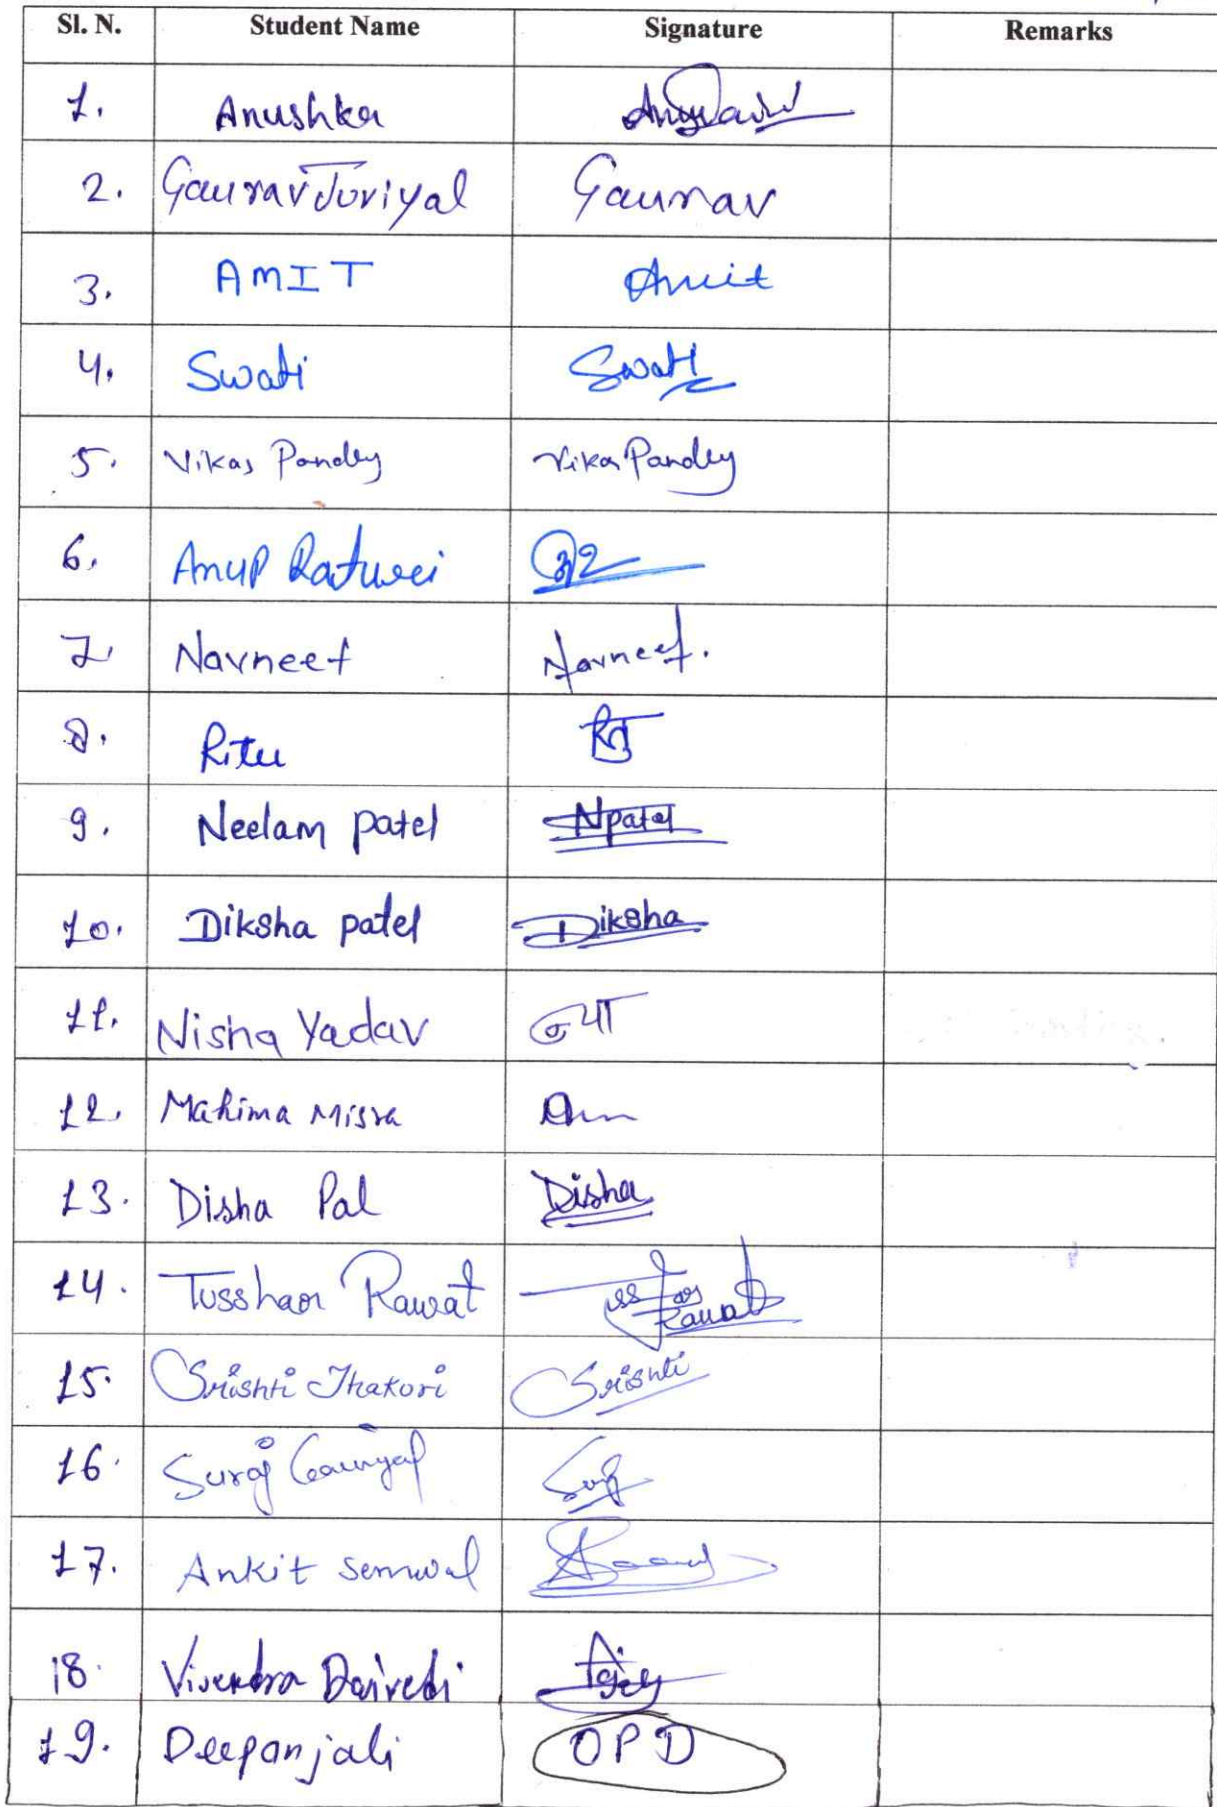 Sl. N. Student Name Signature Remarks
1. Anushka
2. Gaurav Juriyal Gaurav
3. AMIT Amit
4. Swati Swati
5. Vikas Pandey Vikas Pandey
6. Anup Raturi
7. Navneet Navneet.
8. Ritu
9. Neelam patel Npatel
10. Diksha patel Diksha
11. Nisha Yadav
12. Mahima Misra
13. Disha Pal Disha
14. Tusshar Rawat Rawat
15. Srishti Thakori Srishti
16. Suraj Suraj
17. Ankit Semwal
18. Virendra
19. Deepanjali OPD